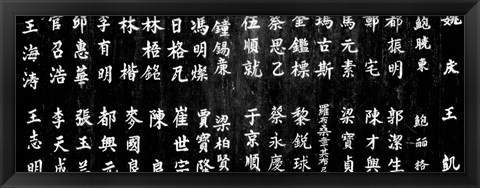 姚 戌 王 凱
鮑曉東 鮑喆
都振明 郭潔生
鄭宅 陳才興
馬元素 梁寶貞
瑪古斯 羅布桑
金鑑標 黎銳球
蔡思乙 蔡永慶
伍順就 于京順
鐘錫廉 梁柏賢
馮明燦 賈寶隆
日格瓦 崔世宗
林梧銘 陳 良
林楷 麥國良
李有明 都興元
卯惠華 張玉
官召浩 李天成
王海涛 王志明